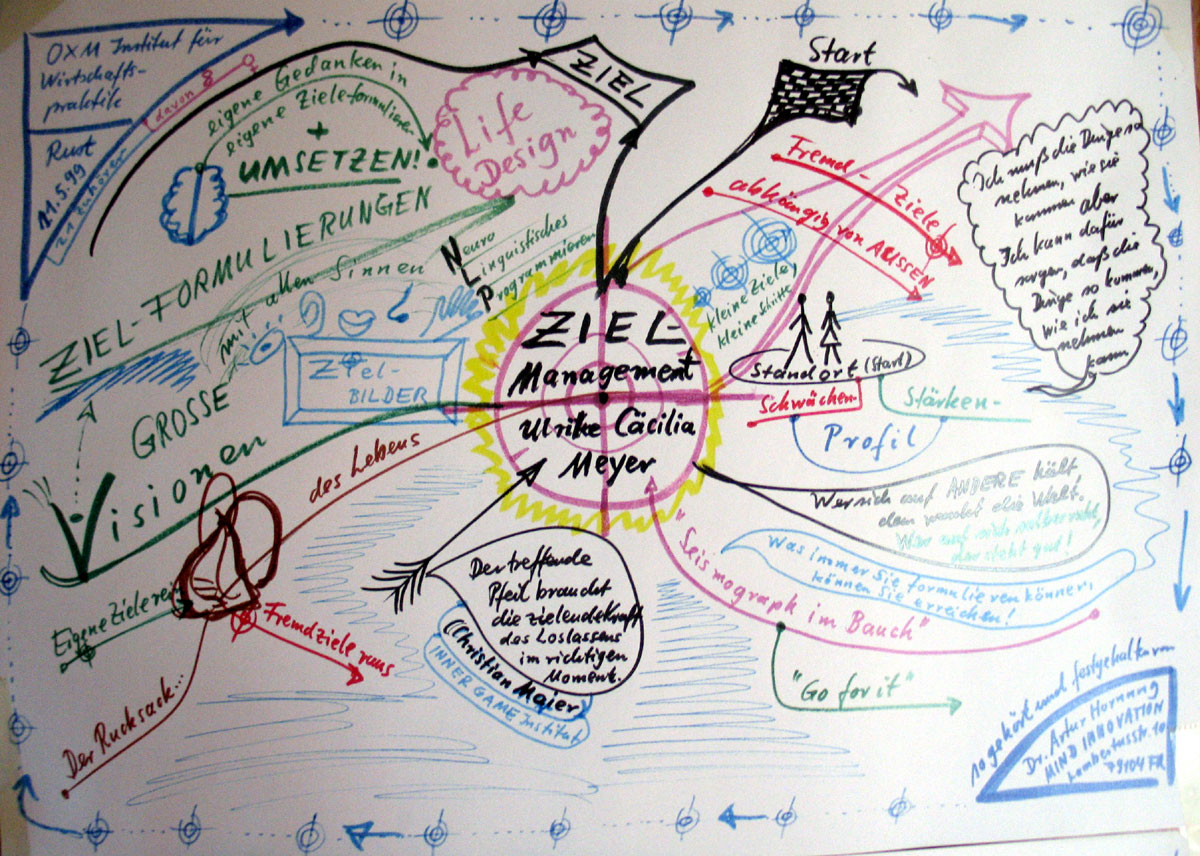 OXM Institut für
Wirtschafts-
praktik
Rust
11.5.99
21 Zuhörer
davon 8
eigene Gedanken in
eigene Ziele formulieren
+
UMSETZEN!
Life
Design
ZIEL
Start
Fremd-Ziele
abhängig von AUSSEN
Ich muß die Dinge so
nehmen, wie sie
kommen aber
Ich kann dafür
sorgen, daß die
Dinge so kommen,
wie ich sie
nehmen
kann
ZIEL-FORMULIERUNGEN
mit allen Sinnen
Neuro
Linguistisches
Programmieren
kleine Ziele,
kleine Schritte
ZIEL-
Management
Ulrike Cäcilia
Meyer
Ziel-
BILDER
Standort (Start)
Schwächen-
Stärken-
Profil
GROSSE
Visionen
des Lebens
Wer sich auf ANDERE hält
dem wankt die Welt.
Wer auf sich selber steht,
der steht gut!
Was immer Sie formulieren können,
können Sie erreichen!
"Seismograph im Bauch"
"Go for it"
Der treffende
Pfeil braucht
die zielende Kraft
des Loslassens
im richtigen
Moment.
(Christian Maier)
INNER GAME Institut
Eigene Ziele rein
Fremdziele raus
Der Rucksack...
so gehört und festgehalten von
Dr. Artur Hornung
MIND INNOVATION
Lambertusstr. 10
79104 FR